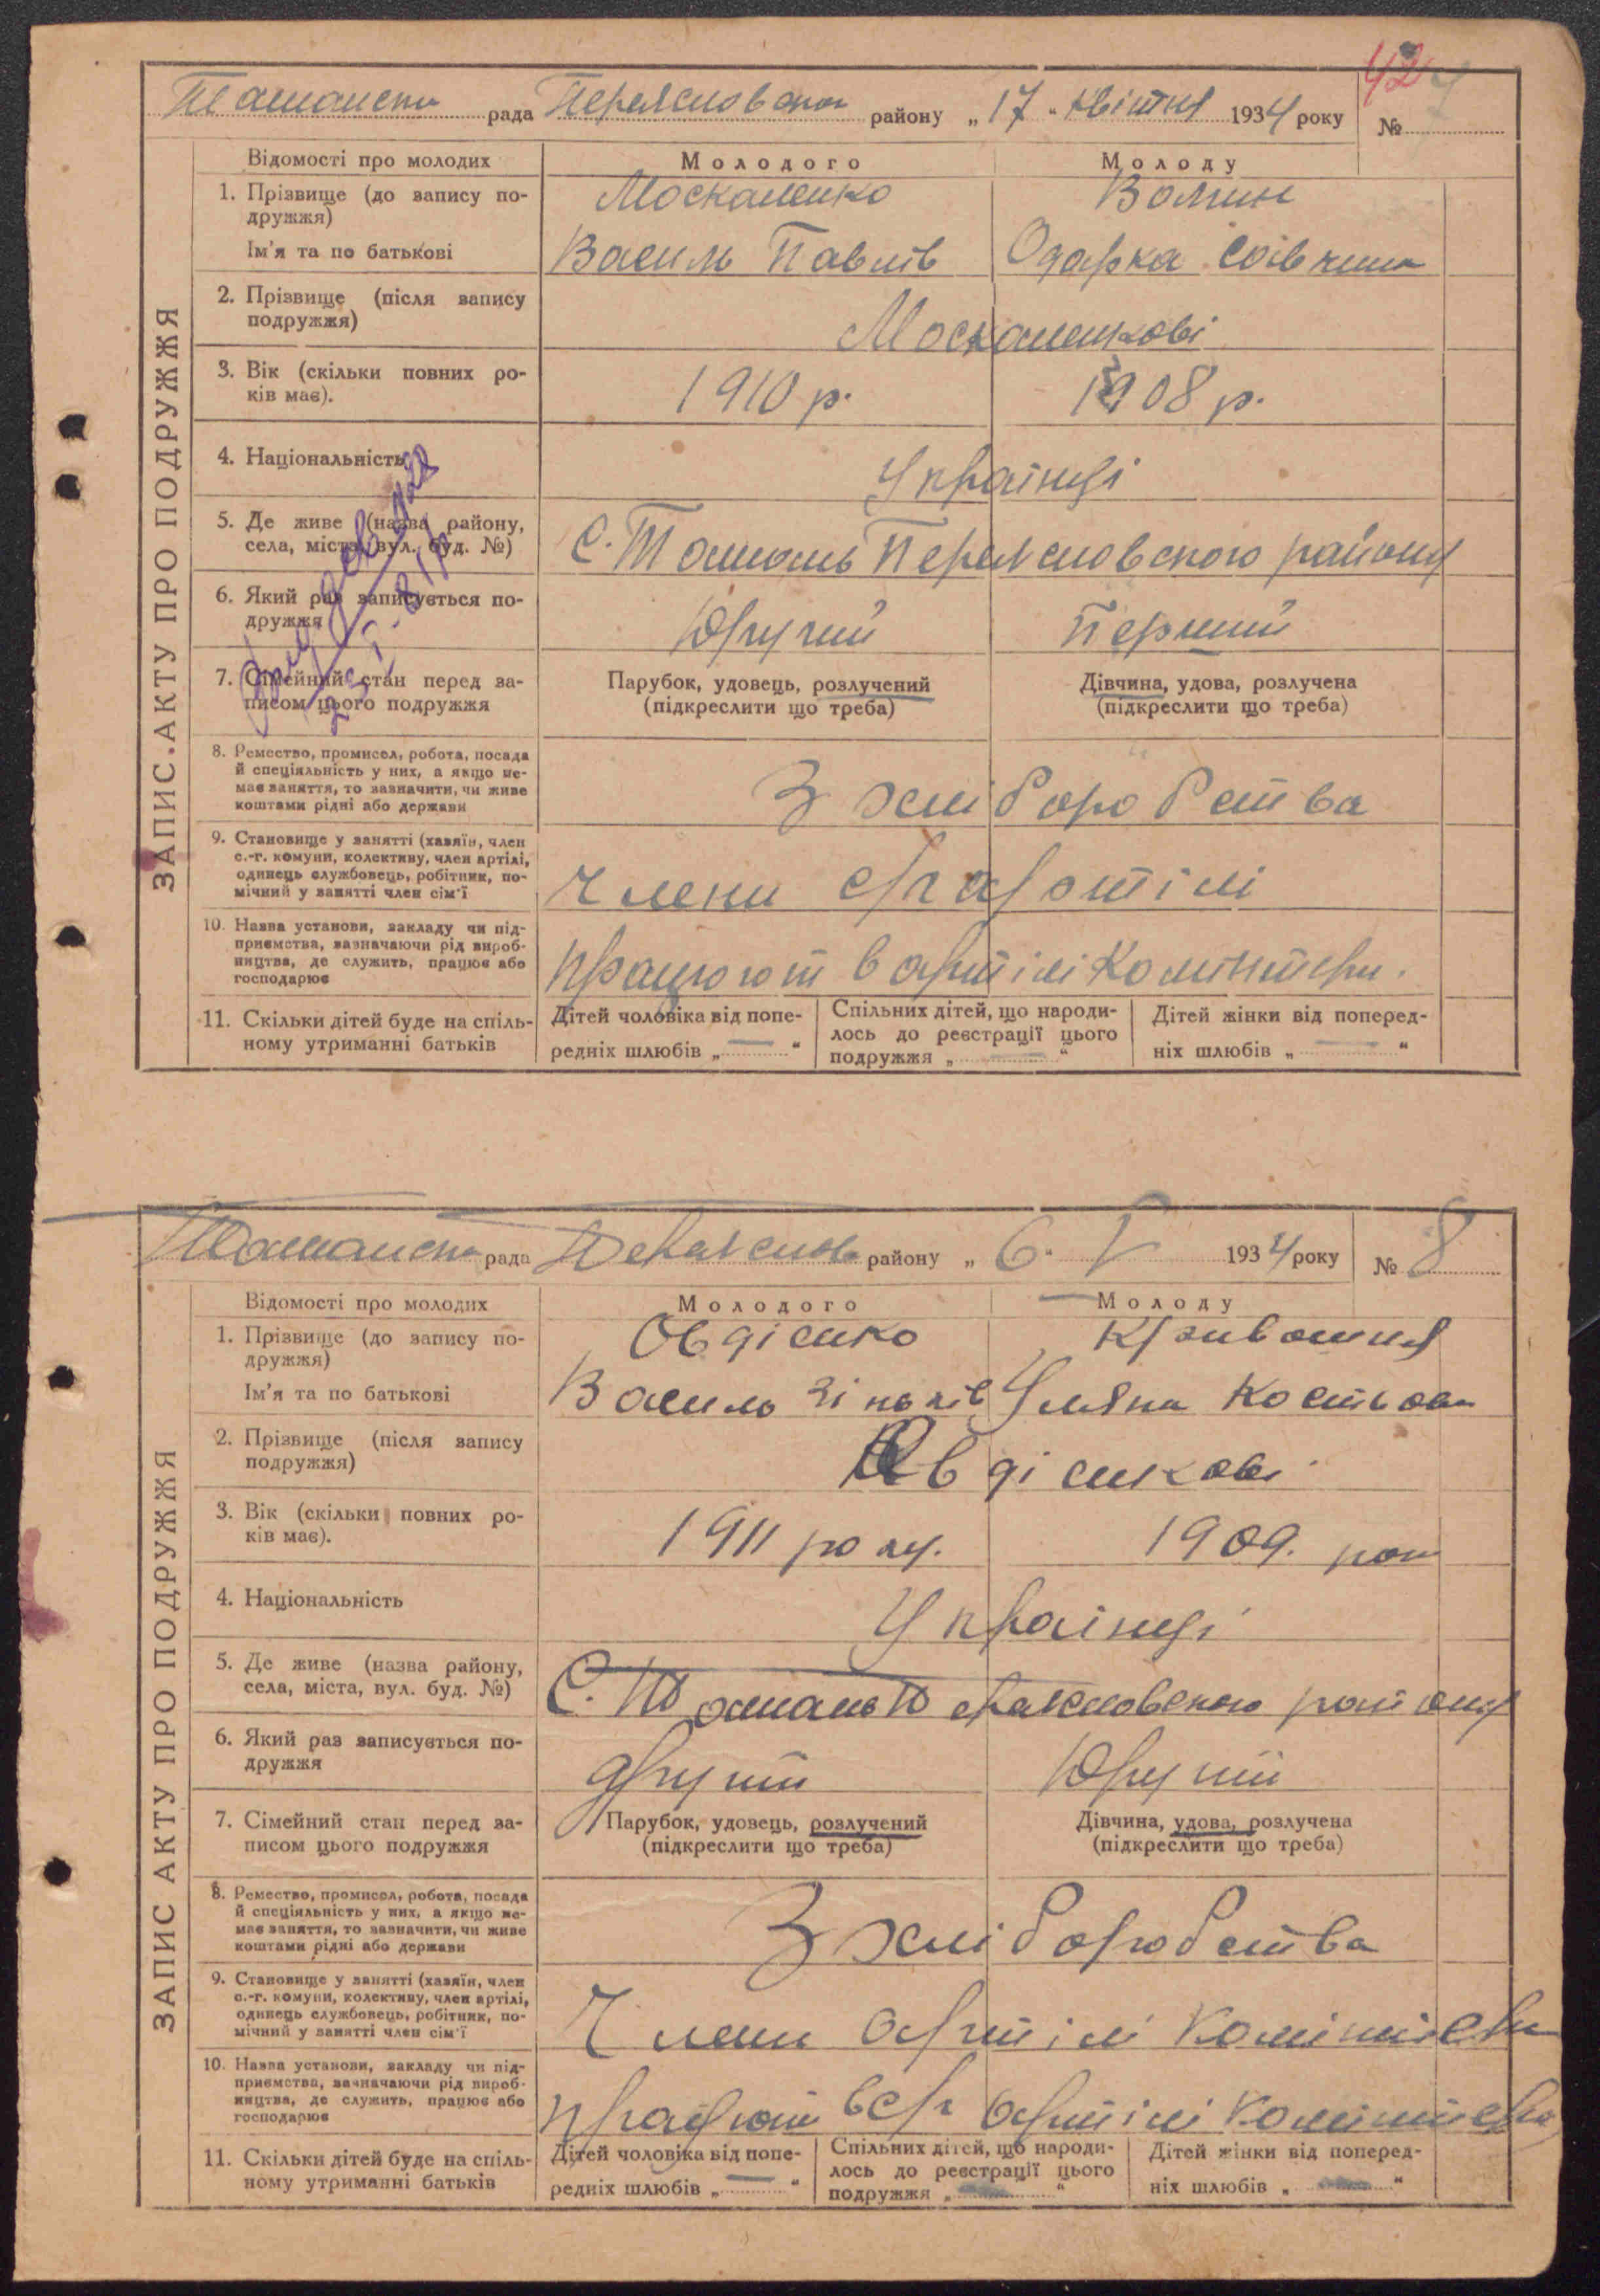 42
Ташанська рада Переяславського району „17“ квітня 1934 року № 7
ЗАПИС АКТУ ПРО ПОДРУЖЖЯ
Відомості про молодих Молодого Молоду
1. Прізвище (до запису по-
дружжя) Москаленко Волчин
Ім'я та по батькові Василь Павлів Одарка
2. Прізвище (після запису
подружжя) Москаленкові
3. Вік (скільки повних ро-
ків має). 1910 р. 1908 р.
4. Національність Українці
5. Де живе (назва району,
села, міста, вул. буд. №) С. Ташань Переяславського району
6. Який раз записується по-
дружжя Другий Перший
7. Сімейний стан перед за-
писом цього подружжя
Парубок, удовець, розлучений
(підкреслити що треба)
Дівчина, удова, розлучена
(підкреслити що треба)
8. Ремество, промисел, робота, посада
й спеціяльність у них, а якщо не-
має заняття, то зазначити, чи живе
коштами рідні або держави
З хліборобства
9. Становище у занятті (хазяїн, член
с.-г. комуни, колективу, член артілі,
одинець службовець, робітник, по-
мічний у занятті член сім'ї
Члени с/г артілі
10. Назва установи, закладу чи під-
приємства, зазначаючи рід вироб-
ництва, де служить, працює або
господарює
працюют в артілі Комінтерн.
11. Скільки дітей буде на спіль-
ному утриманні батьків
Дітей чоловіка від попе-
редніх шлюбів „ — “
Спільних дітей, що народи-
лось до реєстрації цього
подружжя „ — “
Дітей жінки від поперед-
ніх шлюбів „ — “
Ташанська рада Переяслов району „6“ V 1934 року № 8
ЗАПИС АКТУ ПРО ПОДРУЖЖЯ
Відомості про молодих Молодого Молоду
1. Прізвище (до запису по-
дружжя) Овдієнко Кривошия
Ім'я та по батькові Василь Зіньків Уляна Костьова
2. Прізвище (після запису
подружжя) Овдієнкові
3. Вік (скільки повних ро-
ків має). 1911 року. 1909. рок
4. Національність Українці
5. Де живе (назва району,
села, міста, вул. буд. №) С. Ташань Переясловського району
6. Який раз записується по-
дружжя другий Другий
7. Сімейний стан перед за-
писом цього подружжя
Парубок, удовець, розлучений
(підкреслити що треба)
Дівчина, удова, розлучена
(підкреслити що треба)
8. Ремество, промисел, робота, посада
й спеціяльність у них, а якщо не-
має заняття, то зазначити, чи живе
коштами рідні або держави
З хліборобства
9. Становище у занятті (хазяїн, член
с.-г. комуни, колективу, член артілі,
одинець службовець, робітник, по-
мічний у занятті член сім'ї
Члени артілі Комінтерн
10. Назва установи, закладу чи під-
приємства, зазначаючи рід вироб-
ництва, де служить, працює або
господарює
працюют в с/г артілі Комінтерн
11. Скільки дітей буде на спіль-
ному утриманні батьків
Дітей чоловіка від попе-
редніх шлюбів „ — “
Спільних дітей, що народи-
лось до реєстрації цього
подружжя „ — “
Дітей жінки від поперед-
ніх шлюбів „ — “